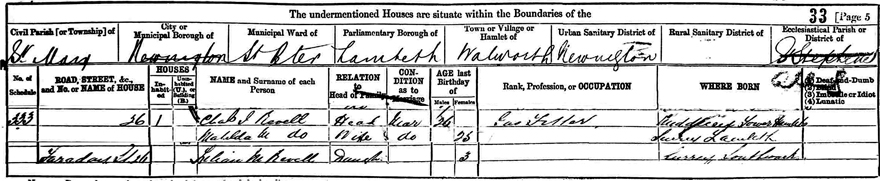 The undermentioned Houses are situate within the Boundaries of the
33 [Page 5
Civil Parish [or Township] of
City or Municipal Borough of
Municipal Ward of
Parliamentary Borough of
Town or Village or Hamlet of
Urban Sanitary District of
Rural Sanitary District of
Ecclesiastical Parish or District of
St Mary Newington St Peter Lambeth Walworth Newington St Stephens
No. of Schedule
ROAD, STREET, &c., and No. or NAME of HOUSE
HOUSES
Inhabited
Uninhabited (U.), or Building (B.)
NAME and Surname of each Person
RELATION to Head of Family
CONDITION as to Marriage
AGE last Birthday of
Males
Females
Rank, Profession, or OCCUPATION
WHERE BORN
(1) Deaf-and-Dumb
(2) Blind
(3) Imbecile or Idiot
(4) Lunatic
333 26 1 Revell Head Mar 26 Gas Fitter
Matilda M do Wife do 25 Surrey Lambeth
Faraday St Lilian M Revell Daugh 3 Surrey Southwark